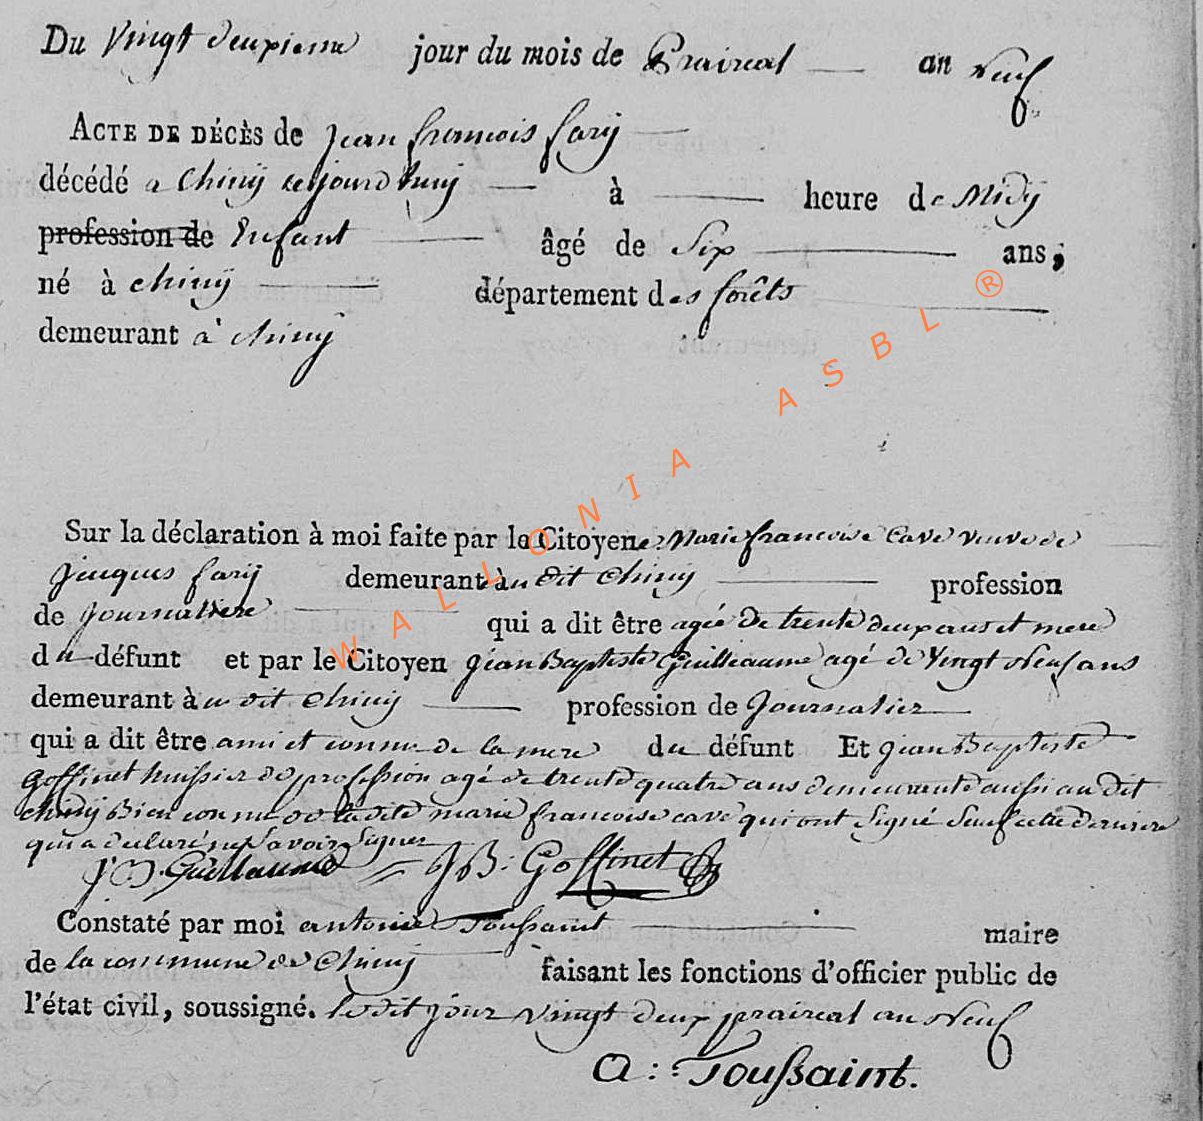 Du Vingt deuxieme jour du mois de Prairéal an neuf
ACTE DE DÉCÈS de Jean francois fary
décédé a Chiny cejourd huy à heure de Midy
profession de Enfant âgé de Six ans,
né à chiny département des forêts
demeurant à chiny
Sur la déclaration à moi faite par la Citoyenne Marie francoise Cave veuve de
Jacques fary demeurant àu dit Chiny profession
de Journaliere qui a dit être agée de trente deux ans et mere
du défunt et par le Citoyen Jean Baptiste Guilleaume agé de Vingt neuf ans
demeurant àu dit Chiny profession de Journalier
qui a dit être ami et connu de la mere du défunt Et Jean Baptiste
Goffinet huissier de profession agé de trente quatre ans demeurante aussi au dit
chiny Bien connu de la dite marie francoise cave qui ont Signé Sauf cette derniere
qui a declaré ne Savoir Signer
J B. Guillaume J B: Goffinet
Constaté par moi antoine Toussaint maire
de la commune de Chiny faisant les fonctions d'officier public de
l'état civil, soussigné. le dit jour vingt deux prairéal an neuf
A: Toussaint.
WALLONIA ASBL ®